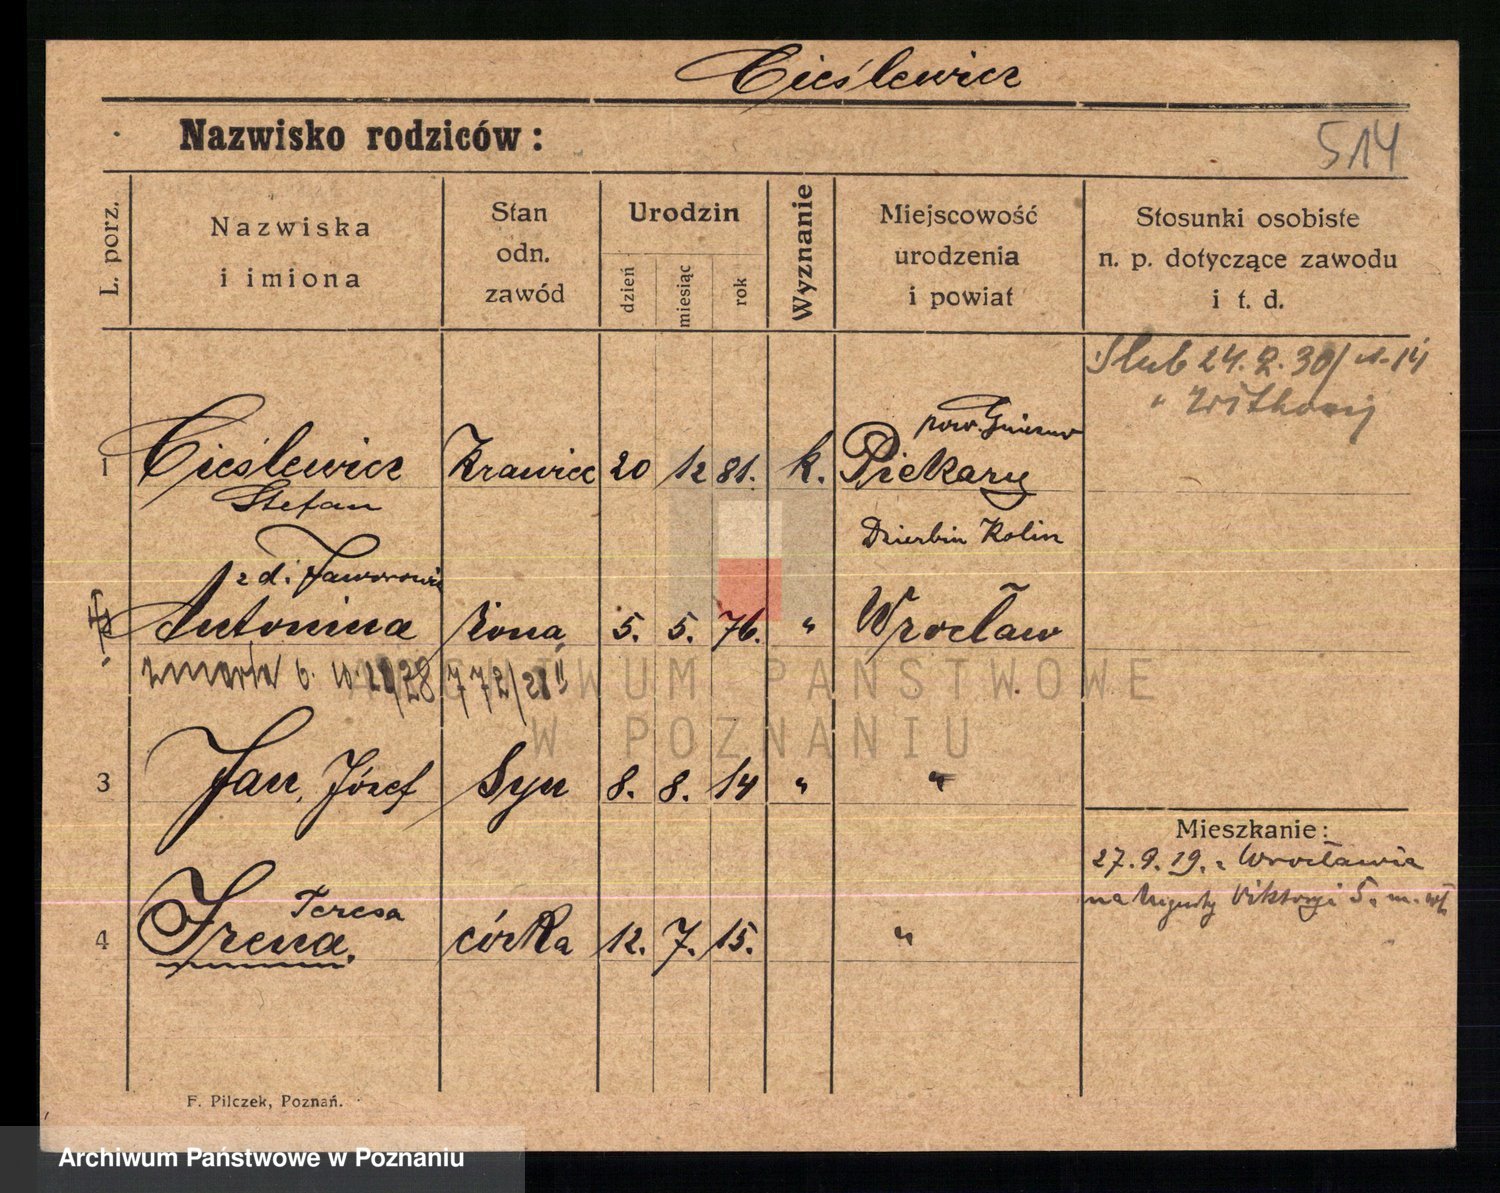 Cieślewicz
Nazwisko rodziców:
514
L. porz.
Nazwiska
i imiona
Stan
odn.
zawód
Urodzin
dzień
miesiąc
rok
Wyznanie
Miejscowość
urodzenia
i powiat
Stosunki osobiste
n. p. dotyczące zawodu
i t. d.
Slub 24. 2. 30/
pow. Gniezno
1 Cieślewicz Krawiec 20 12 81. k. Piekary
Stefan
Dzierbin Kolin
z d. Jaworowicz
Antonina żona 5. 5. 76. " Wrocław
zmarła 6. 10. 28 772/28 II
3 Jan, Józef Syn 8. 8. 14 " "
Mieszkanie:
27. 9. 19. z Wrocławia
na Augusty Viktoryi 5. m.
4 Irena Teresa córka 12. 7. 15. "
F. Pilczek, Poznań.
ARCHIWUM PAŃSTWOWE
W POZNANIU
Archiwum Państwowe w Poznaniu